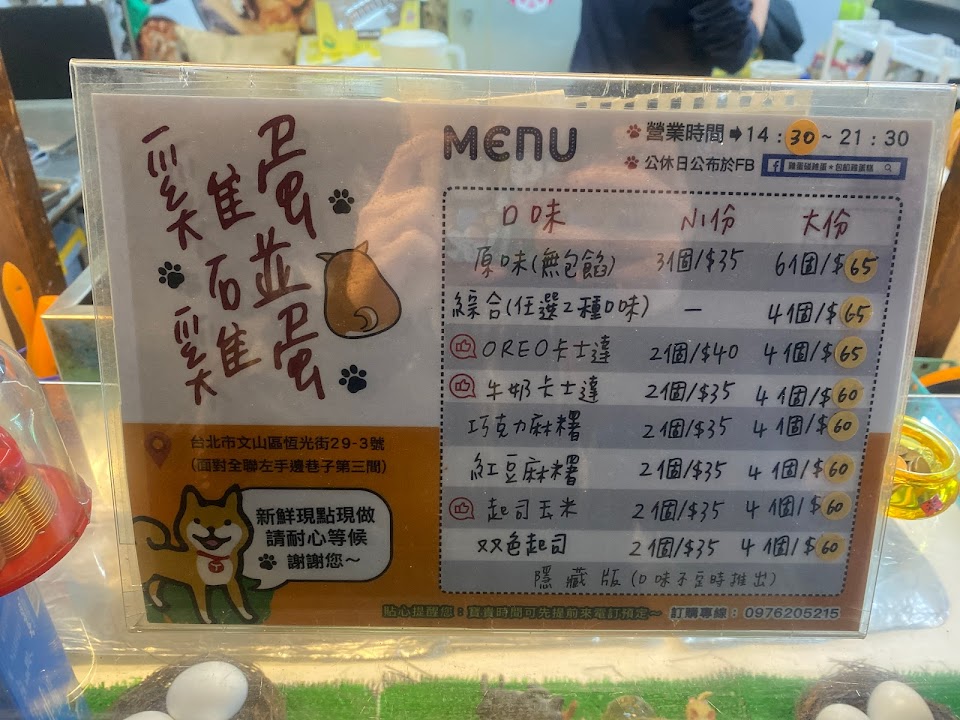 雞蛋
碰
雞蛋
MENU
營業時間➡14:30~21:30
公休日公布於FB
雞蛋碰雞蛋★包餡雞蛋糕
口味 小份 大份
原味(無包餡) 3個/$35 6個/$65
綜合(任選2種口味) — 4個/$65
OREO卡士達 2個/$40 4個/$65
牛奶卡士達 2個/$35 4個/$60
巧克力麻糬 2個/$35 4個/$60
紅豆麻糬 2個/$35 4個/$60
起司玉米 2個/$35 4個/$60
双色起司 2個/$35 4個/$60
隱藏版(口味不定時推出)
台北市文山區恆光街29-3號
(面對全聯左手邊巷子第三間)
新鮮現點現做
請耐心等候
謝謝您~
貼心提醒您:寶貴時間可先提前來電訂預定~ 訂購專線:0976205215